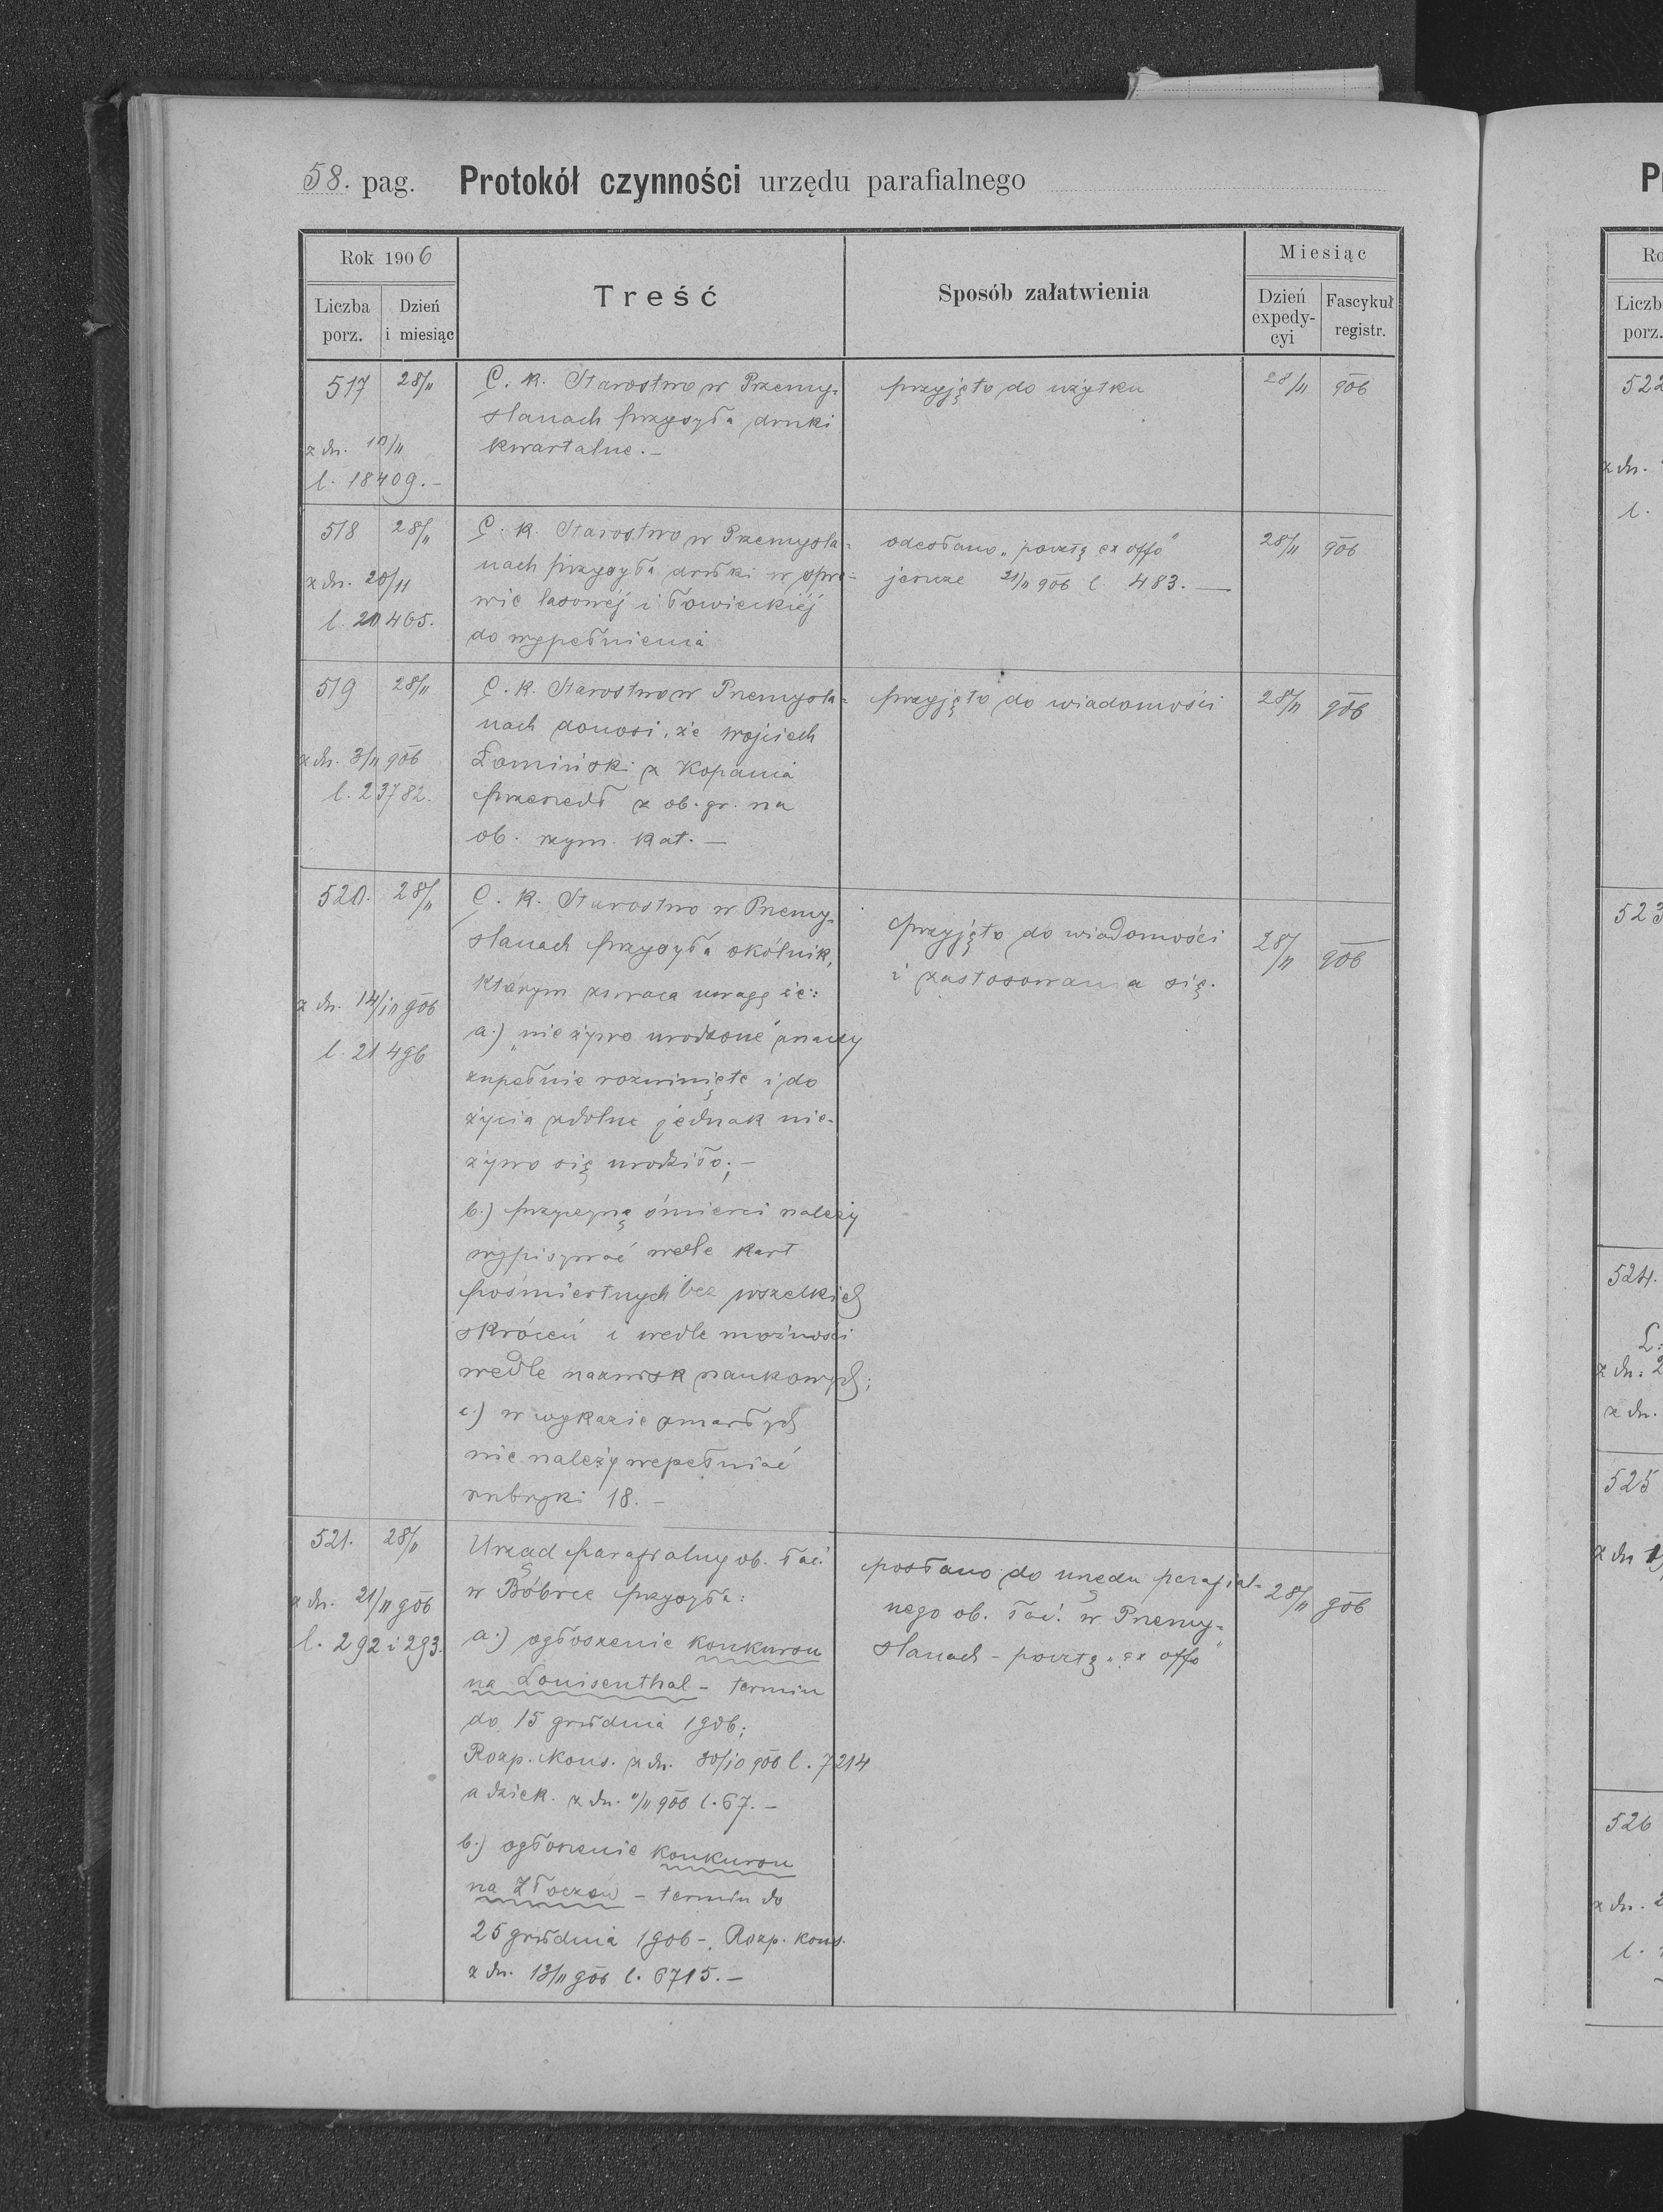 58. pag. Protokół czynności urzędu parafialnego
Rok 1906
Liczba porz.
Dzień i miesiąc
Treść
Sposób załatwienia
Miesiąc
Dzień expedycyi
Fascykuł registr.
517 28/11
z dn. 10/11
l. 18409.-
C. K. Starostwo w Przemy-
ślanach przysyła druki
kwartalne.-
przyjęto do użytku
28/11 906
518 28/11
z dn. 20/11
l. 20465.
C. K. Starostwo w Przemyśla-
nach przysyła druki w spra-
wie lasowéj i łowieckiéj
do wypełnienia
odesłano „pocztą ex offo"
jeszcze 21/11 906 l. 483.—
28/11 906
519 28/11
z dn. 3/11 906
l. 23782.
C. K. Starostwo w Przemyśla-
nach donosi, że Wojciech
Łomiński z Kopania
przeszedł z ob. gr. na
ob. rzym. kat.—
przyjęto do wiadomości
28/11 906
520. 28/11
z dn. 14/10 906
l. 21496
C. K. Starostwo w Przemy-
ślanach przysyła okólnik,
którym zwraca uwagę że:
a.) „nieżywo urodzone" znaczy
zupełnie rozwinięte i do
życia zdolne jednak nie-
żywo się urodziło;-
b.) przyczynę śmierci należy
wypisywać wedle kart
pośmiertnych bez wszelkich
skróceń i wedle możności
wedle nazwisk naukowych;
c.) w wykazie zmarłych
nie należy wepełniać
rubryki 18.-
przyjęto do wiadomości
i zastosowania się.
28/11 906
521. 28/11
z dn. 21/11 906
l. 292 i 293.
Urząd parafialny ob. łać.
w Bóbrce przysyła:
a.) ogłoszenie konkursu
na Louisenthal - termin
do 15 grudnia 1906;
Rozp. Kons. z dn. 30/10 906 l. 7214
a dziek. z dn. 11/11 906 l. 67.-
b.) ogłoszenie konkursu
na Złoczów - termin do
25 grudnia 1906-. Rozp. kons.
z dn. 13/11 906 l. 6715.-
posłano do urzędu parafial-
nego ob. łać. w Przemy-
ślanach - pocztą „ex offo"
28/11 906
Liczb
porz.
522
z dn.
l.
523
524.
z dn. 2
z dn.
525
z dn
526
z dn. 2
l.